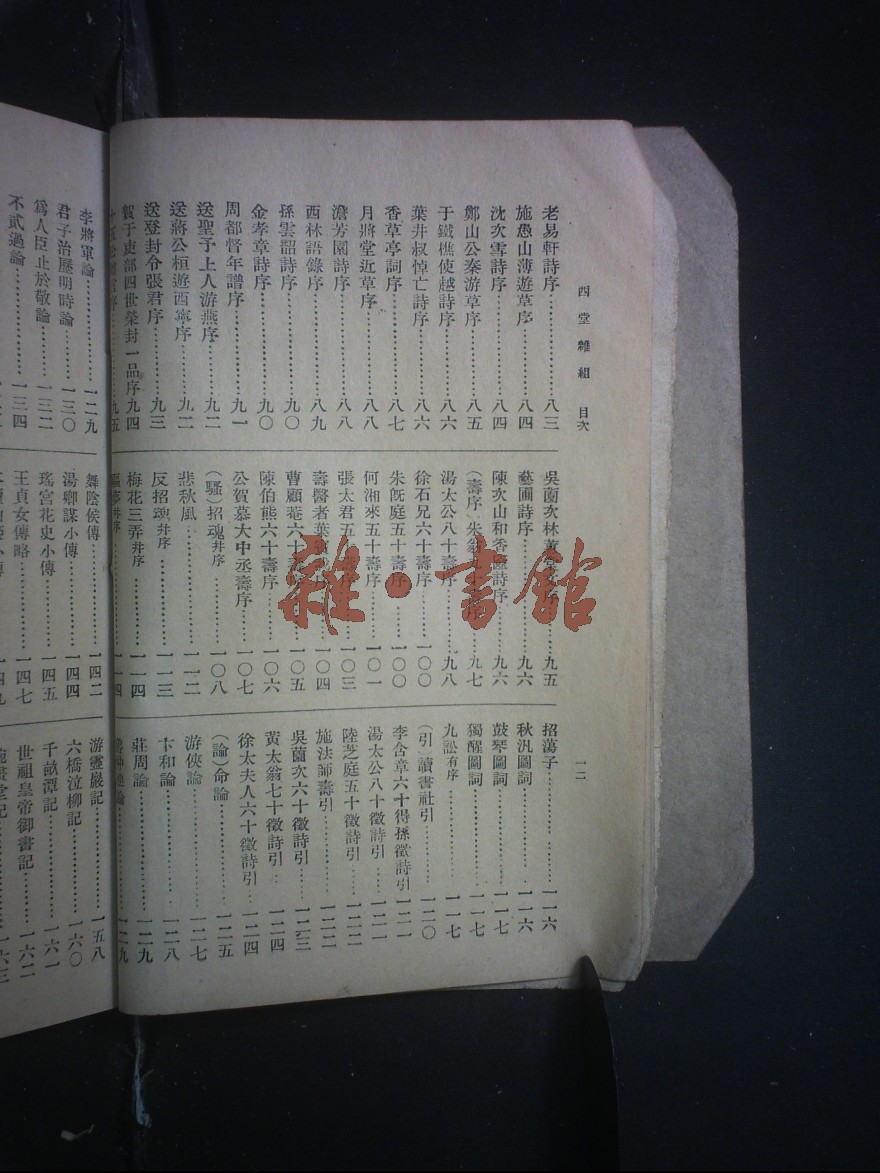 四堂雜組 目次
一二
老易軒詩序…………八三
施愚山薄遊草序……八四
沈次雪詩序…………八四
鄭山公秦游草序……八五
于鐵樵使越詩序……八六
葉井叔悼亡詩序……八六
香草亭詞序…………八七
月將堂近草序………八八
澹芳園詩序…………八八
西林語錄序…………八九
孫雲韶詩序…………九〇
金孝章詩序…………九〇
周都督年譜序………九一
送聖予上人游燕序…九二
送蔣公桓遊西寧序…九二
送登封令張君序……九三
賀于吏部四世榮封一品序九四
九五
吳薗次林蕙堂 九五
藝圃詩序……九六
陳次山和香奩詩序……九六
（壽序）朱翁 序……九七
湯太公八十壽序……九八
徐石兄六十壽序……一〇〇
朱旣庭五十壽序……一〇〇
何湘來五十壽序……一〇一
張太君五 壽序……一〇三
壽醫者葉 序……一〇四
曹顧菴六十壽序……一〇五
陳伯熊六十壽序……一〇六
公賀慕大中丞壽序……一〇七
（騷）招魂幷序……一〇八
悲秋風……一一二
反招魂幷序……一一三
梅花三弄幷序……一一四
驅夢幷序……一一四
招蕩子……一一六
秋汎圖詞……一一六
鼓琴圖詞……一一七
獨醒圖詞……一一七
九訟有序……一一七
（引）讀書社引……一二〇
李含章六十得孫徵詩引 一二一
湯太公八十徵詩引……一二一
陸芝庭五十徵詩引……一二二
施法師壽引……一二二
吳薗次六十徵詩引……一二三
黃太翁七十徵詩引…一二四
徐太夫人六十徵詩引…一二四
（論）命論……一二五
游俠論……一二七
卞和論……一二八
莊周論……一二九
論……一二九
李將軍論……一二九
君子治厯明時論……一三〇
爲人臣止於敬論……一三二
不貳過論……一三四
舞陰侯傳……一四二
湯卿謀小傳……一四四
瑤宮花史小傳……一四五
王貞女傳略……一四七
小傳 一四九
游靈巖記……一五八
六橋泣柳記……一六〇
千畝潭記……一六一
世祖皇帝御書記……一六二
畫堂記……一六三
雜·書館